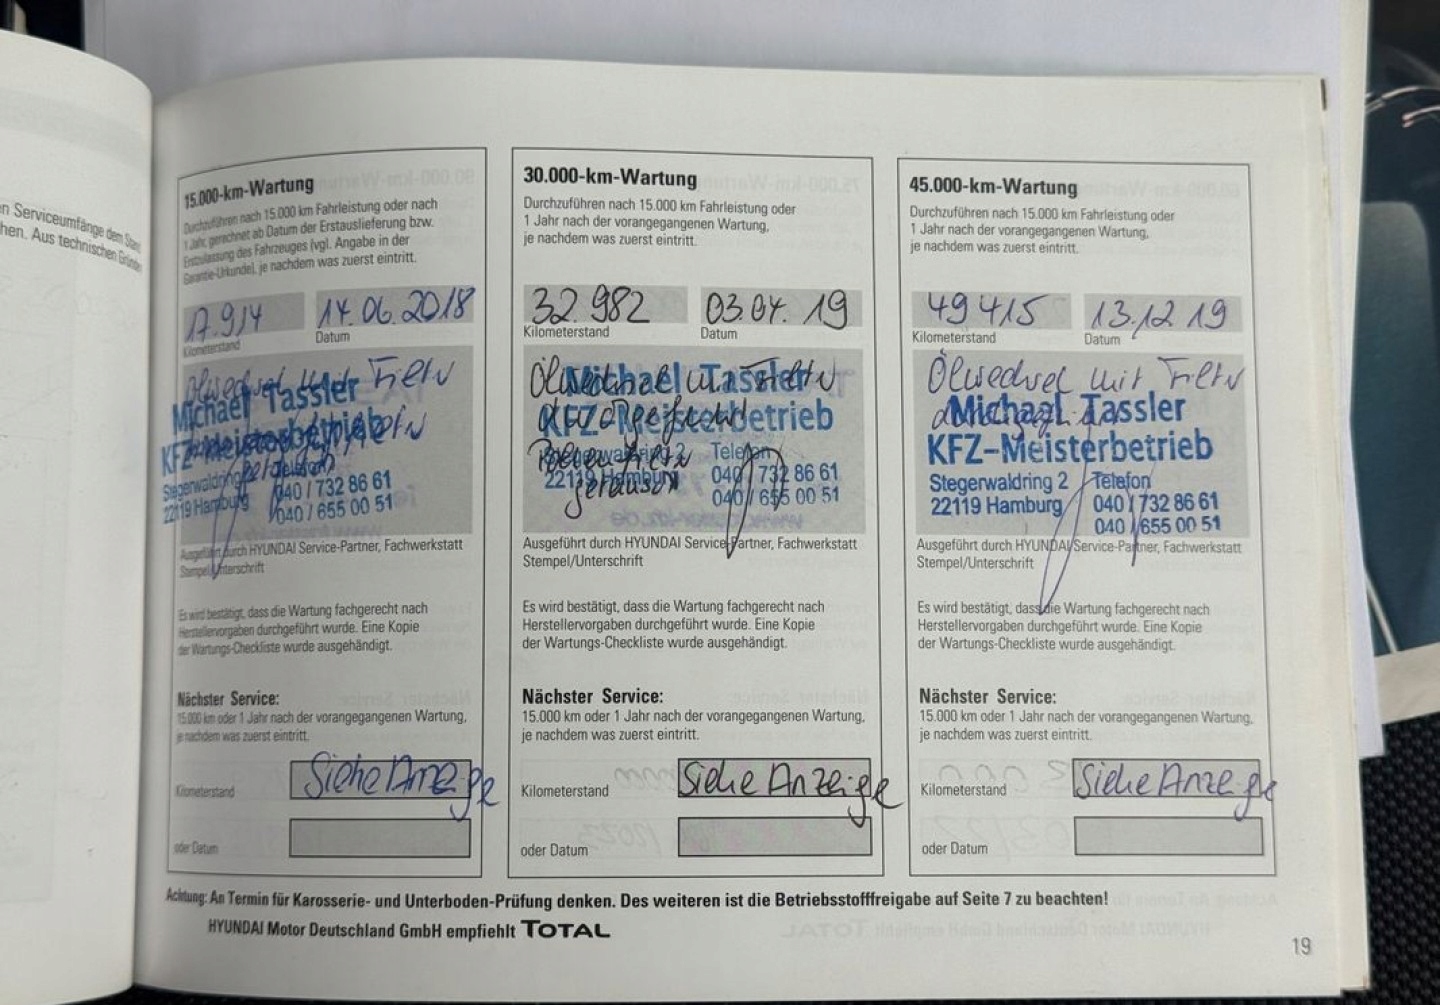 n Serviceumfänge dem
hen. Aus technischen
15.000-km-Wartung
Durchzuführen nach 15.000 km Fahrleistung oder nach
1 Jahr, gerechnet ab Datum der Erstauslieferung bzw.
Erstzulassung des Fahrzeuges (vgl. Angabe in der
Garantie-Urkunde), je nachdem was zuerst eintritt.
17.914 14.06.2018
Kilometerstand Datum
Ölwechsel mit Filtern
Michael Tassler
KFZ-Meisterbetrieb
Stegerwaldring Telefon
22119 Hamburg 040 / 732 86 61
040 / 655 00 51
Ausgeführt durch HYUNDAI Service-Partner, Fachwerkstatt
Stempel/Unterschrift
Es wird bestätigt, dass die Wartung fachgerecht nach
Herstellervorgaben durchgeführt wurde. Eine Kopie
der Wartungs-Checkliste wurde ausgehändigt.
Nächster Service:
15.000 km oder 1 Jahr nach der vorangegangenen Wartung,
je nachdem was zuerst eintritt.
Kilometerstand Siehe Anzeige
oder Datum
30.000-km-Wartung
Durchzuführen nach 15.000 km Fahrleistung oder
1 Jahr nach der vorangegangenen Wartung,
je nachdem was zuerst eintritt.
32.982 03.04.19
Kilometerstand Datum
Ölwechsel
Michael Tassler
KFZ-Meisterbetrieb
Stegerwaldring 2 Telefon
22119 Hamburg 040 / 732 86 61
040 / 655 00 51
Ausgeführt durch HYUNDAI Service-Partner, Fachwerkstatt
Stempel/Unterschrift
Es wird bestätigt, dass die Wartung fachgerecht nach
Herstellervorgaben durchgeführt wurde. Eine Kopie
der Wartungs-Checkliste wurde ausgehändigt.
Nächster Service:
15.000 km oder 1 Jahr nach der vorangegangenen Wartung,
je nachdem was zuerst eintritt.
Kilometerstand Siehe Anzeige
oder Datum
45.000-km-Wartung
Durchzuführen nach 15.000 km Fahrleistung oder
1 Jahr nach der vorangegangenen Wartung,
je nachdem was zuerst eintritt.
49415 13.12.19
Kilometerstand Datum
Ölwechsel mit Filtern
Michael Tassler
KFZ-Meisterbetrieb
Stegerwaldring 2 Telefon
22119 Hamburg 040 / 732 86 61
040 / 655 00 51
Ausgeführt durch HYUNDAI Service-Partner, Fachwerkstatt
Stempel/Unterschrift
Es wird bestätigt, dass die Wartung fachgerecht nach
Herstellervorgaben durchgeführt wurde. Eine Kopie
der Wartungs-Checkliste wurde ausgehändigt.
Nächster Service:
15.000 km oder 1 Jahr nach der vorangegangenen Wartung,
je nachdem was zuerst eintritt.
Kilometerstand Siehe Anzeige
oder Datum
Achtung: An Termin für Karosserie- und Unterboden-Prüfung denken. Des weiteren ist die Betriebsstofffreigabe auf Seite 7 zu beachten!
HYUNDAI Motor Deutschland GmbH empfiehlt TOTAL
19